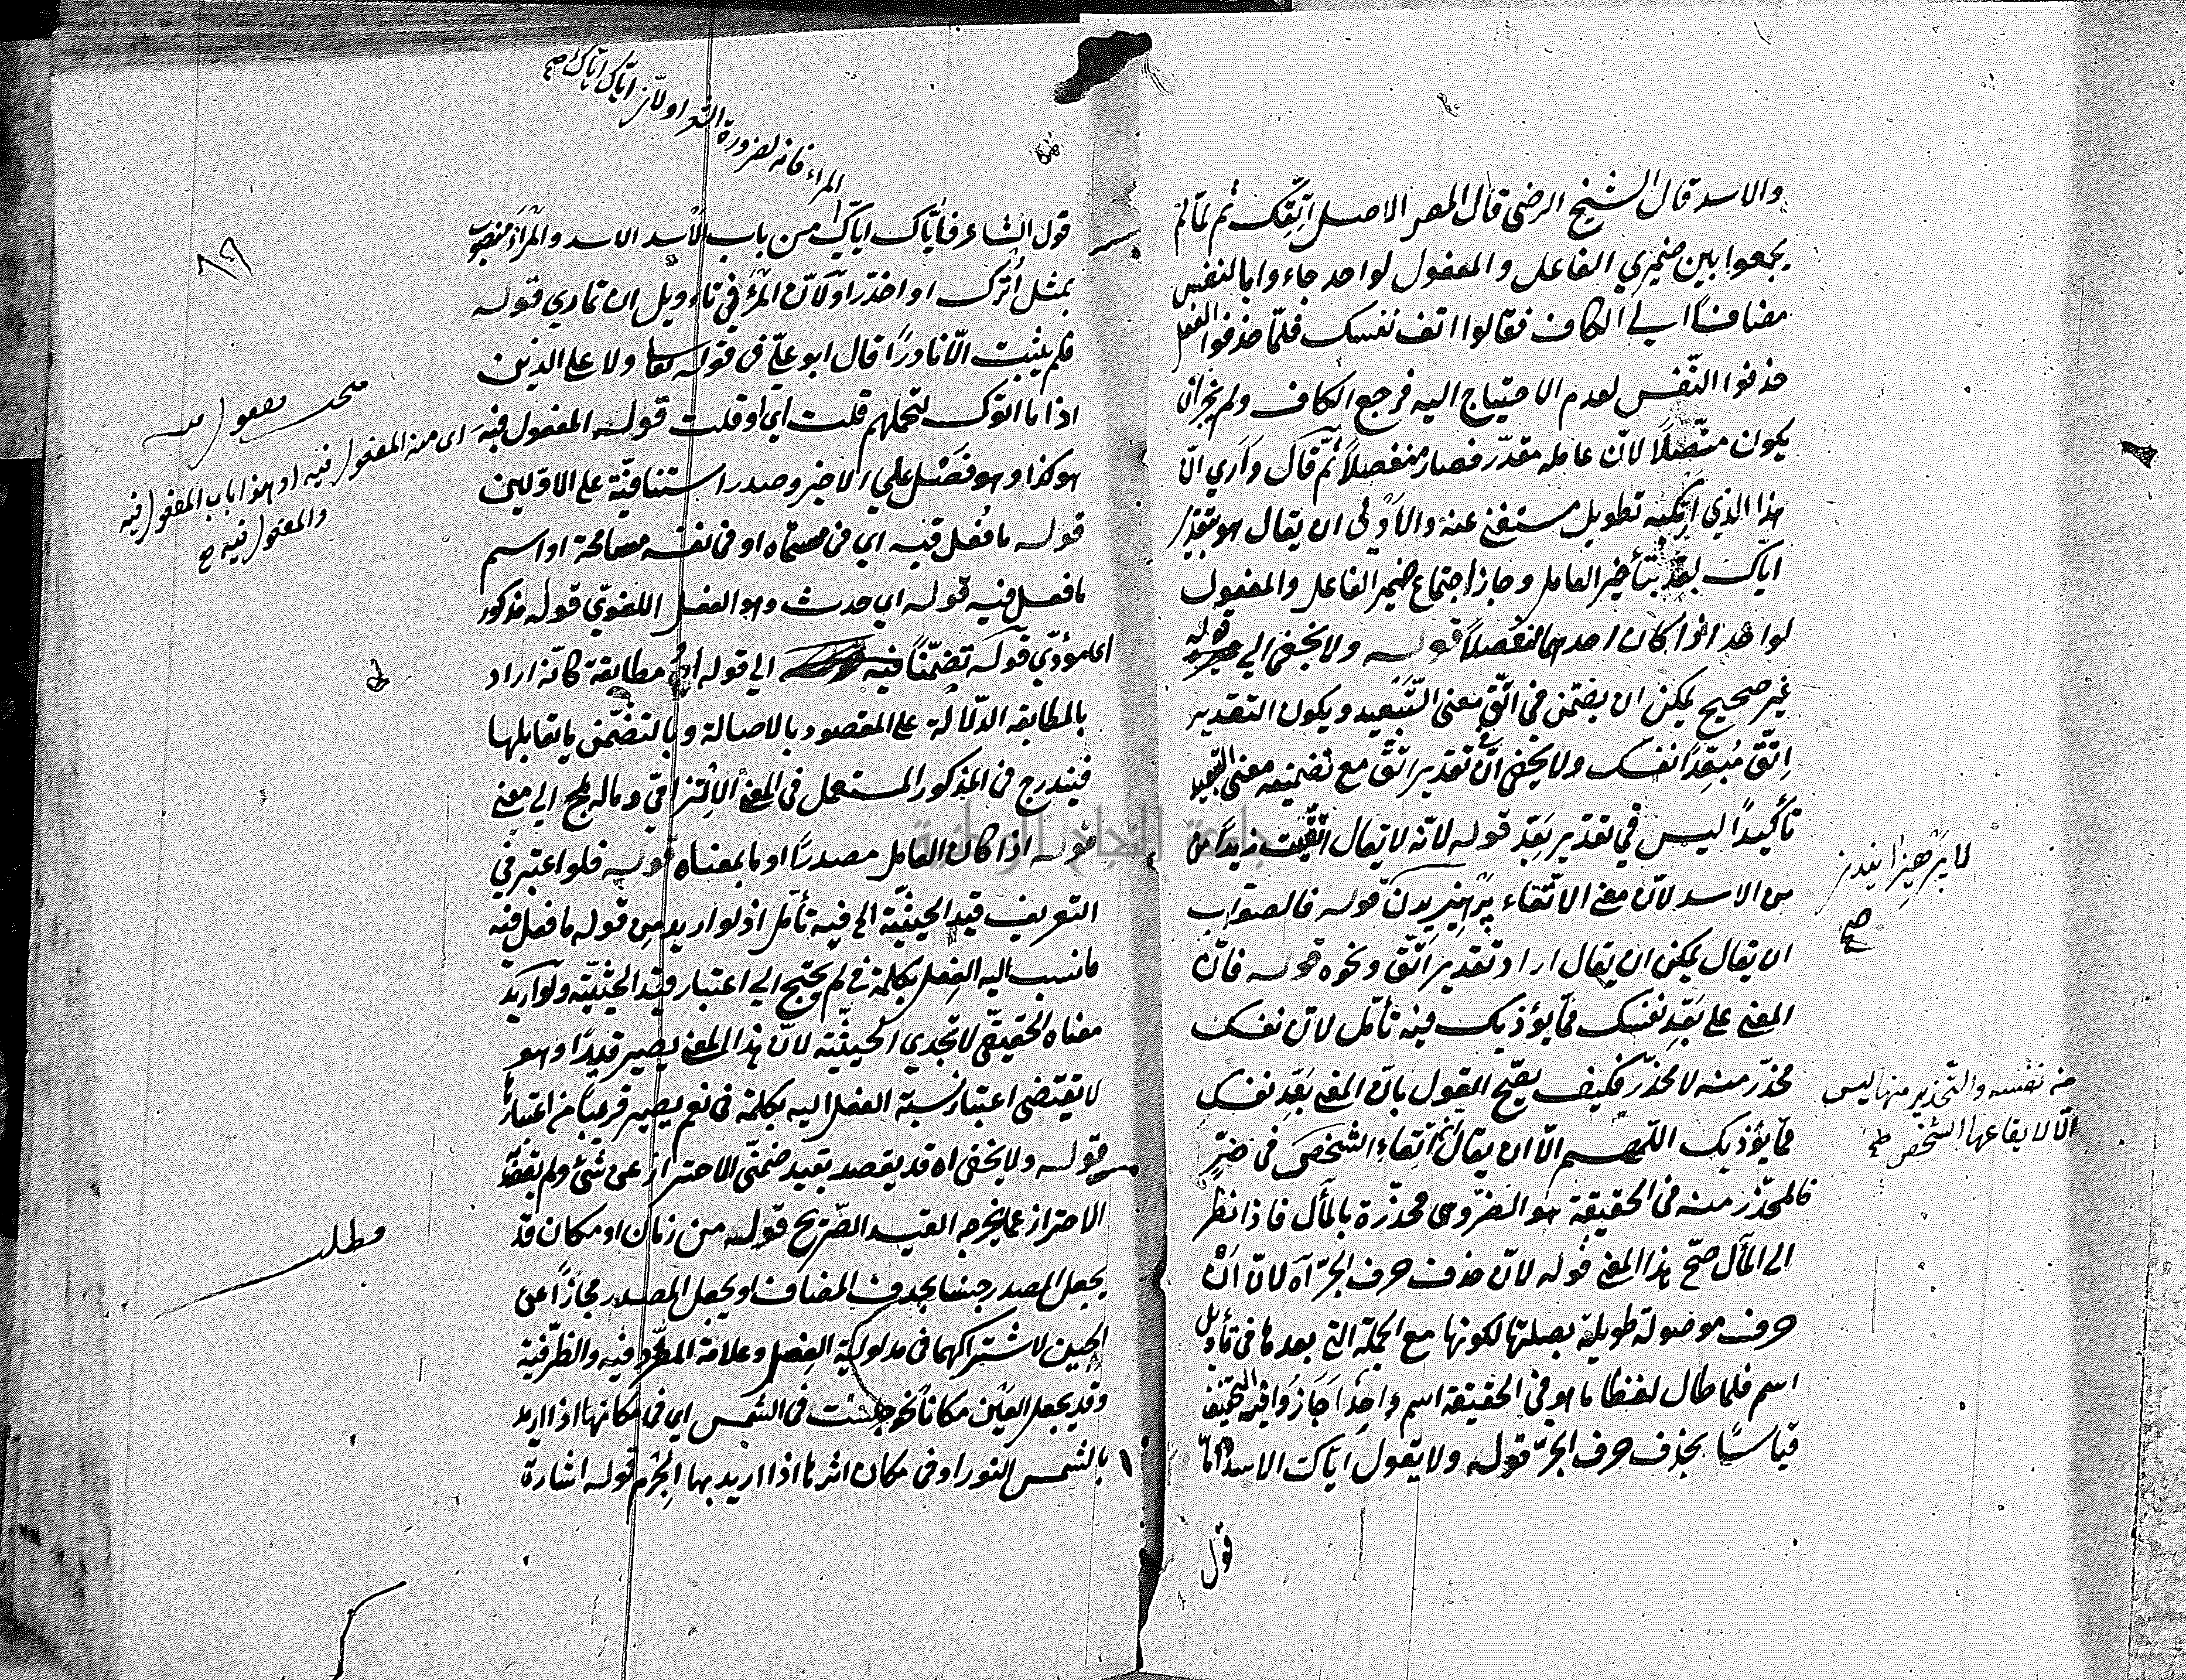 والاسد قال الشيخ الرضى قال المصر الاصل اتّقك ثم لمّا لم
يجمعوا بين ضميري الفاعل والمفعول لواحد جاءوا بالنفس
مضافًا الي الكاف فقالوا اتق نفسك فلمّا حذفوا الفعل
حذفوا النّفس لعدم الاحتياج اليه فرجع الكاف ولم يجز ان
يكون متّصلًا لانّ عامله مقدّر فصار منفصلًا ثمّ قال وارَي انّ
هذا الذي ارتكبه تطويل مستغنى عنه والاَولى ان يقال هو بتقدير
ايّاك بعّد بتأخير العامل وجاز اجتماع ضمير الفاعل والمفعول
لواحد اذا كان احدهما منفصلًا قوله ولا يخفى الي قوله
غير صحيح يمكن ان يضمّن في اتّق معنى التّبعيد ويكون التقدير
اِتّق مُبعّدًا نفسك ولا يخفى انّ تقدير اتّق مع تضمينه معنى التبعيد
تأكيدًا ليس في تقدير بَعّد قوله لانّه لا يقال اتّقيت زيدًا
من الاسد لانّ معنى الاتّقاء پرهيزيدن قوله فالصّواب
ان يقال يمكن ان يقال اراد تقدير اتّق ونحوه قوله فانّ
المعنى على بَعّد نفسك ممّا يؤذيك فيه تأمّل لانّ نفسك
محذّر منه لا محذّر فكيف يصّح القول بانّ المعنى بَعّد نفسك
ممّا يؤذيك اللّهم الّا ان يقال اتّقاء الشخص في ضرّ
فالمحذّر منه في الحقيقة هو الضرّ وهي محذّرة بالمآل فاذا نظر
الى المآل صحّ هذا المعنى قوله لانّ حذف حرف الجرّ آه لانّ اَنْ
حرف موصولة طويلة بصلتها لكونها مع الجملة التى بعدها في تأويل
اسم فلما طال لفظا ما هو في الحقيقة اسم واحد اجازوا فيه التخفيف
قياسًا بحذف حرف الجرّ قوله ولا يقول ايّاك الاسد امّا
قول
لا پرهيزانيدن
صح
منه نفسه والتّحذير منها ليس
الّا لايقاعها الشخص
المراء فانه لضرورة الشعر او لانّ ايّاك ايّاك صح
قول الشاعر فايّاك ايّاك من باب الاسد الاسد والمراءَ منصوب
بمثل اُترُك او احذر او لانّ المرءَ في تأويل ان تماري قوله
فلم يثبت الّا نادرًا قال ابو عليّ في قوله تعالى ولا على الذين
اذا ما اتوك لتحملهم قلت اي وقلت قوله المفعول فيه
هو كذا وهو فصْل على الاخير وصدر استئنافيّة على الاوّلين
قوله ما فُعل فيه اي في مسمّاه او في نفسه مسامحة او اسم
ما فعل فيه قوله اي حدث وهو الفعل اللغويّ قوله مذكور
اى مؤدّي قوله تضمّنًا فيه الى قوله او مطابقة كانّه اراد
بالمطابقة الدّلالة على المقصود بالاصالة وبالتضمّن ما تقابلها
فيندرج في المذكور المستعمل في المعنى الالتزاميّ وما له لمح الى معنى
قوله اذا كان العامل مصدرًا او ما بمعناه قوله فلو اعتبر في
التعريف قيد الحيثيّة الخ فيه تأمّل اذ لو اريد من قوله ما فعل فيه
ما نسب اليه الفعل بكلمة في لم يحتج الي اعتبار قيد الحيثيّة ولو اريد
معناه الحقيقي لا تجدي الحيثيّة لانّ هذا المعنى يصير قيدًا وهو
لا يقتضي اعتبار نسبة الفعل اليه بكلمة في نعم يصير قريبًا من اعتبارها
قوله ولا يخفى اه قد يقصد بقيد ضمنّى الاحتراز عن شئ ولم يقصد
الاحتراز عما يخرجه القيد الصّريح قوله من زمان او مكان قد
يجعل المصدر حينًا بحذف المضاف او يجعل المصدر مجازًا عن
الحين لاشتراكهما في مدلوليّة الفعل وعلامة المطّرد فيه والظّرفية
وقد يجعل العَين مكانًا نحو جلست في الشمس اي في مكانها اذا اريد
بالشمس النور او في مكان اثرها اذا اريد بها الجرم قوله اشارة
٨٩
مفعول فيه
اى منه المفعول فيه او هذا باب المفعول فيه
والمفعول فيه صح
مطلب
جامعة النجاح الوطنية